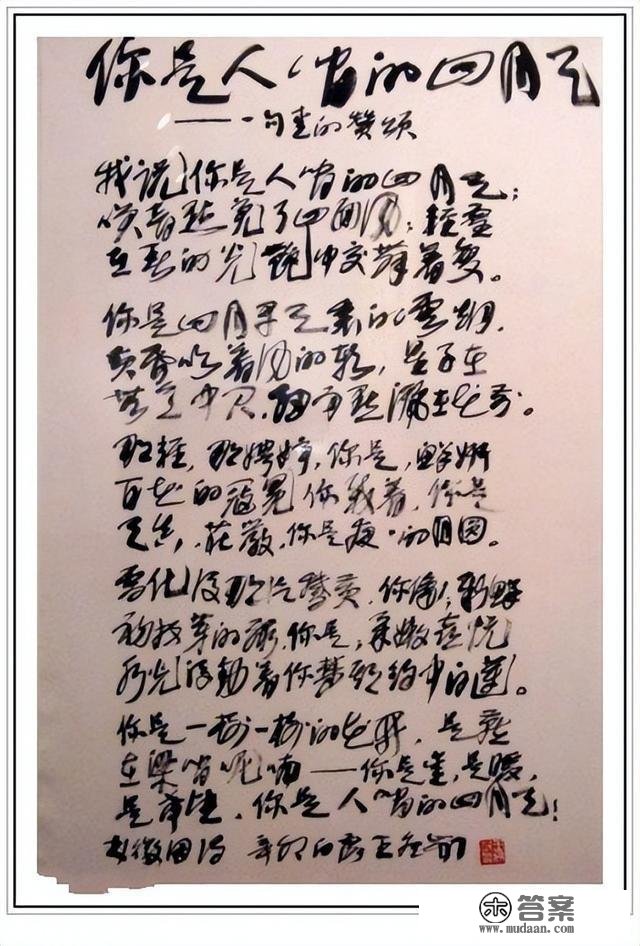 你是人间的四月天
——一句爱的赞颂
我说你是人间的四月天；
笑音点亮了四面风；轻灵
在春的光艳中交舞着变。
你是四月早天里的云烟，
黄昏吹着风的软，星子在
无意中闪，细雨点洒在花前。
那轻，那娉婷，你是，鲜妍
百花的冠冕你戴着，你是
天真，庄严，你是夜夜的月圆。
雪化后那片鹅黄，你像；新鲜
初放芽的绿，你是；柔嫩喜悦
水光浮动着你梦期待中白莲。
你是一树一树的花开，是燕
在梁间呢喃——你是爱，是暖，
是希望，你是人间的四月天！
林徽因诗 辛卯白露王
答案
www.mudaan.com